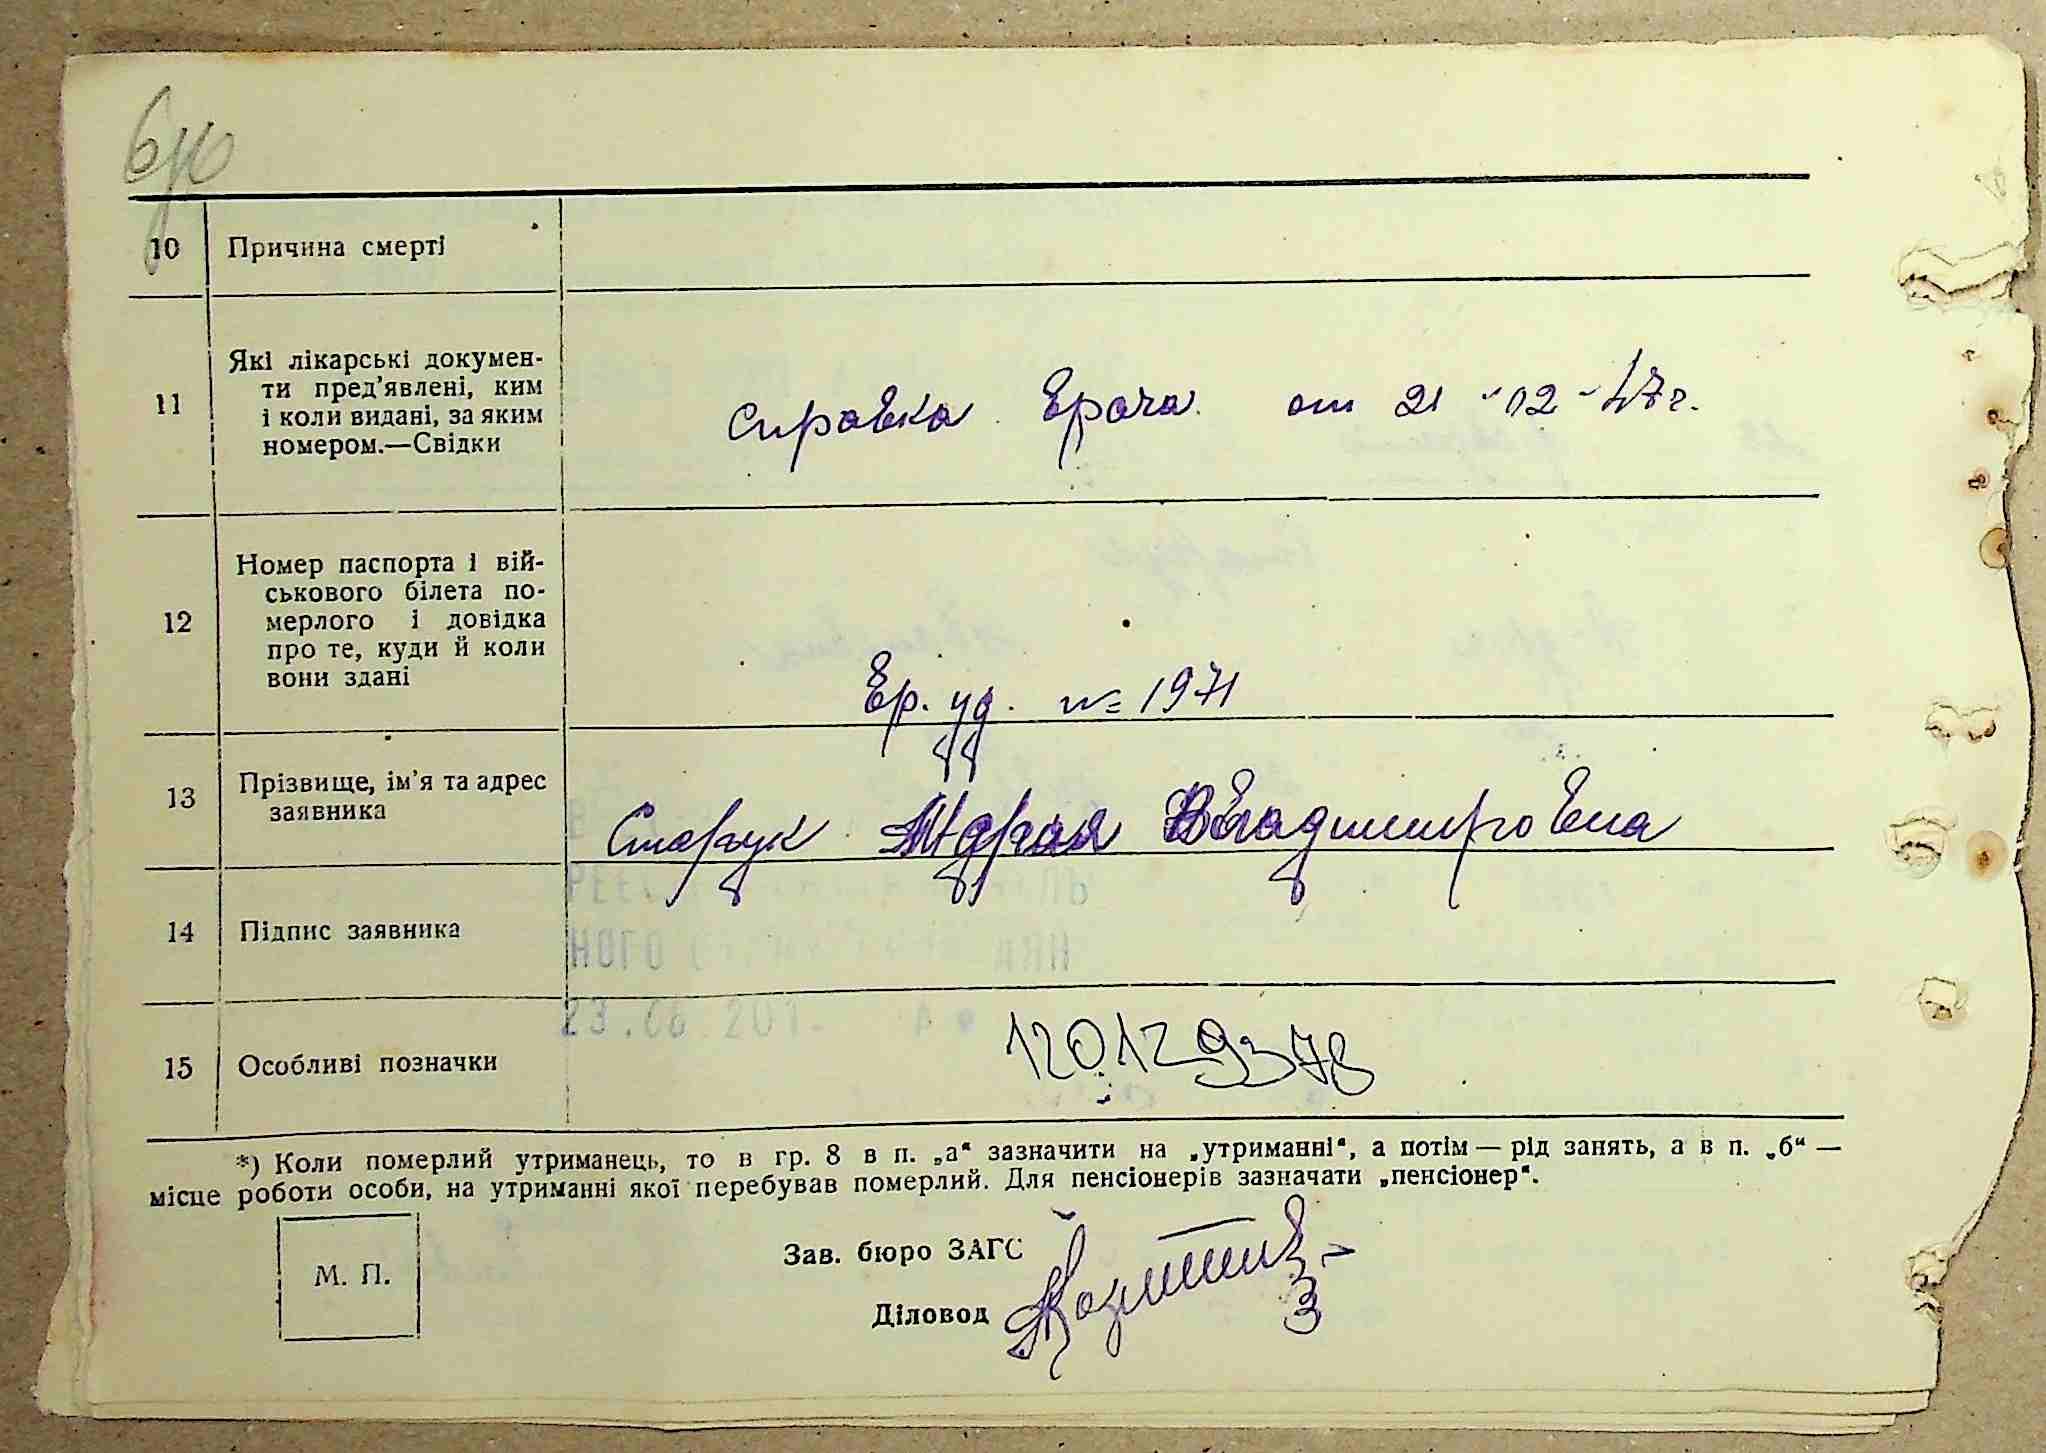 10 Причина смерті
11 Які лікарські докумен-
ти пред'явлені, ким
і коли видані, за яким
номером.—Свідки
справка врача от 21-02-47г.
12 Номер паспорта і вій-
ськового білета по-
мерлого і довідка
про те, куди й коли
вони здані
Вр. уд. № 1971
13 Прізвище, ім'я та адрес
заявника
Старук Владимировна
14 Підпис заявника
НОГО
15 Особливі позначки
120129378
*) Коли померлий утриманець, то в гр. 8 в п. „а“ зазначити на „утриманні“, а потім — рід занять, а в п. „б“ —
місце роботи особи, на утриманні якої перебував померлий. Для пенсіонерів зазначати „пенсіонер“.
М. П.
Зав. бюро ЗАГС
Діловод